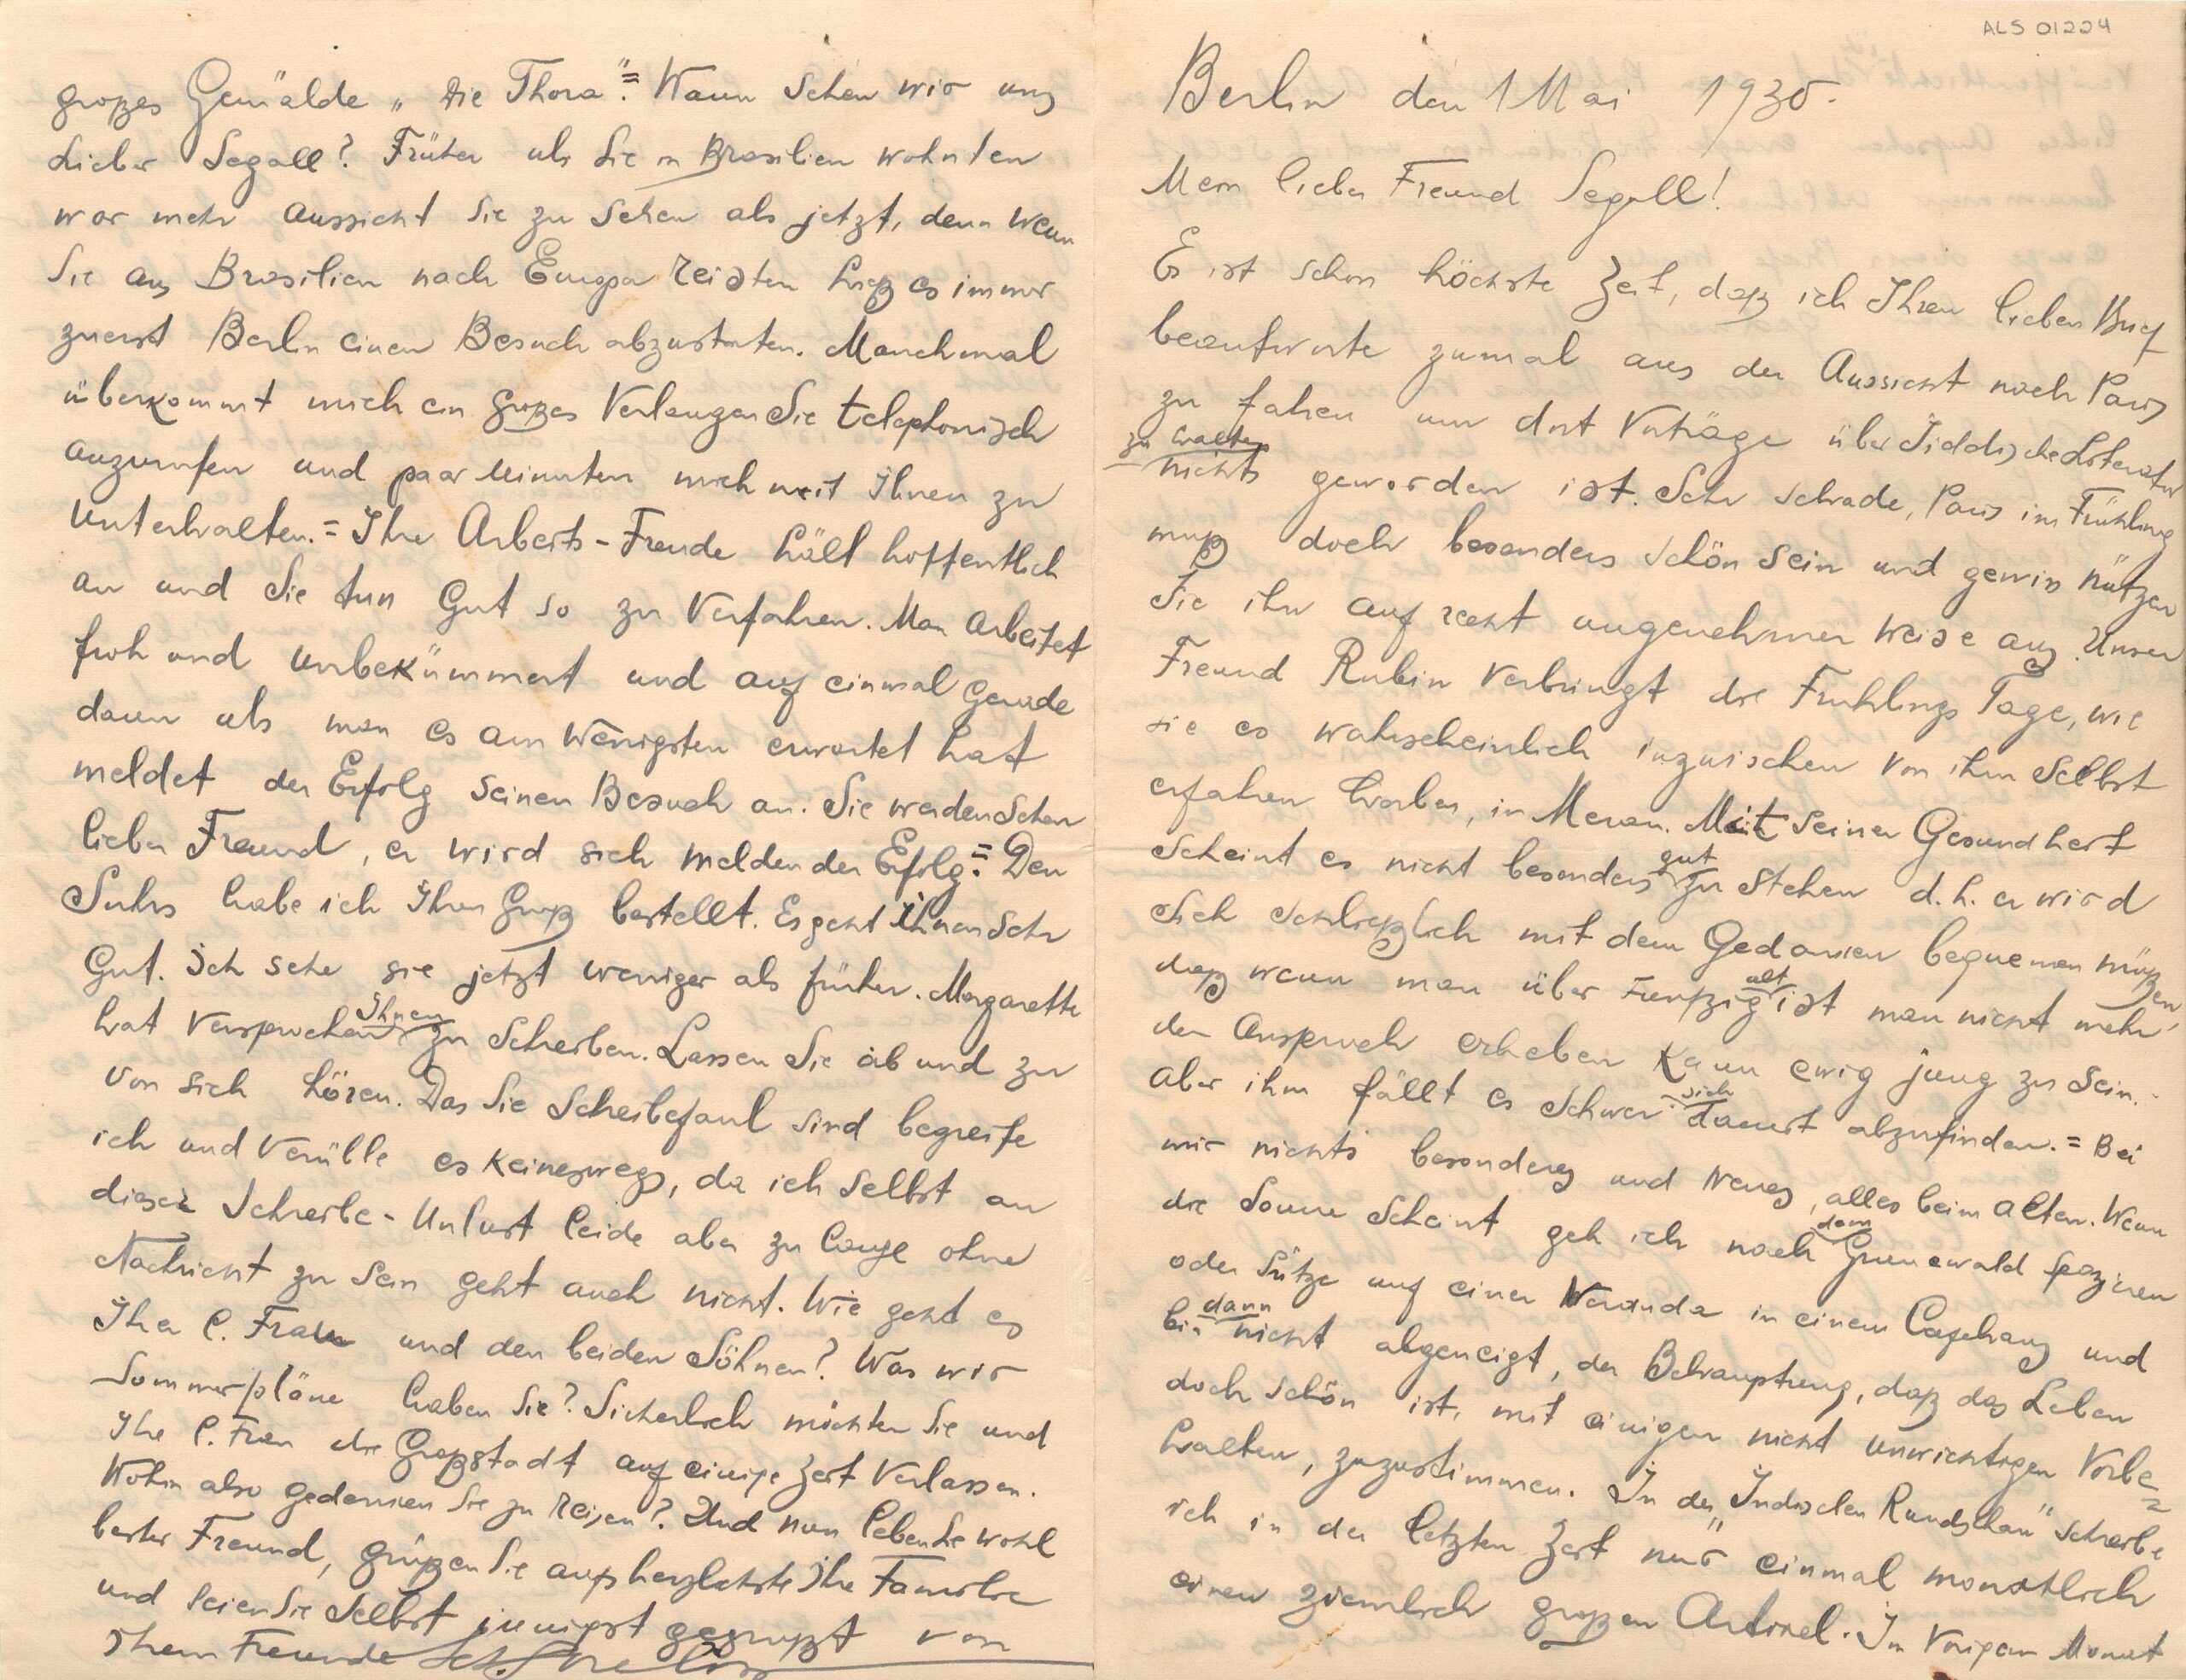 ALS 01224
Berlin den 1 Mai 1930.
Mein lieber Freund Segall!
Es ist schon höchste Zeit, daß ich Ihren lieben Brief
beantworte zumal aus der Aussicht nach Paris
zu fahren um dort Vorträge über Jiddische Literatur
zu halten
nichts geworden ist. Sehr schade, Paris im Frühling
muß doch besonders schön sein und gewiss nützen
Sie ihn auf recht angenehmer Weise aus. Unser
Freund Rubin verbringt die Frühlings Tage, wie
sie es wahrscheinlich inzwischen von ihm selbst
erfahren haben, in Meran. Mit seiner Gesundheit
gut
scheint es nicht besonders zu stehen d.h. er wird
sich schließlich mit dem Gedanken bequemen müßen,
alt
daß wenn man über Funfzig ist man nicht mehr
den Anspruch erheben kann ewig jung zu sein.
sich
Aber ihm fällt es schwer damit abzufinden. = Bei
mir nichts besonders und Neues, alles beim alten. Wenn
dem
die Sonne scheint geh ich nach Grunewald spazieren
oder sitze auf einer Veranda in einem Cafehaus und
dann
bin nicht abgeneigt, der Behauptung, daß das Leben
doch schön ist, mit einigen nicht unwichtigen Vorbe=
halten, zuzustimmen. In der „Jüdischen Rundschau" schreibe
ich in der letzten Zeit nur einmal monatlich
einen ziemlich großen Artikel. Im vorigen Monat
großes Gemälde „Die Thora".= Wann sehen wir uns
Lieber Segall? Früher als Sie in Brasilien wohnten
war mehr Aussicht Sie zu sehen als jetzt, denn wenn
Sie aus Brasilien nach Europa reisten hieß es immer
zuerst Berlin einen Besuch abzustatten. Manchmal
überkommt mich ein großes Verlangen Sie telephonisch
anzurufen und paar Minuten mich mit Ihnen zu
Unterhalten.= Ihre Arbeits-Freude hält hoffentlich
an und Sie tun Gut so zu Verfahren. Man arbeitet
froh und unbekümmert und auf einmal gerade
dann als man es am Wenigsten erwartet hat
meldet der Erfolg seinen Besuch an. Sie werden sehen
lieber Freund, er wird sich melden der Erfolg.= Den
Suhrs habe ich Ihren Gruß bestellt. Es geht ihnen sehr
Gut. Ich sehe sie jetzt weniger als früher. Margarette
Ihnen
hat versprochen zu schreiben. Lassen Sie ab und zu
von sich hören. Das Sie schreibefaul sind begreife
ich und Verüble es keineswegs, da ich selbst an
dieser Schreibe-Unlust leide aber zu lange ohne
Nachricht zu sein geht auch nicht. Wie geht es
Ihrer l. Frau und den beiden Söhnen? Was wir
Sommerpläne haben Sie? Sicherlich möchten Sie und
Ihre l. Frau die Großstadt auf einige Zeit Verlassen.
Wohin also gedenken Sie zu reisen? Und nun leben Sie wohl
bester Freund, grüßen Sie aufs herzlichste Ihre Familie
und seien Sie selbst innigst gegrüßt von
Ihrem Freunde